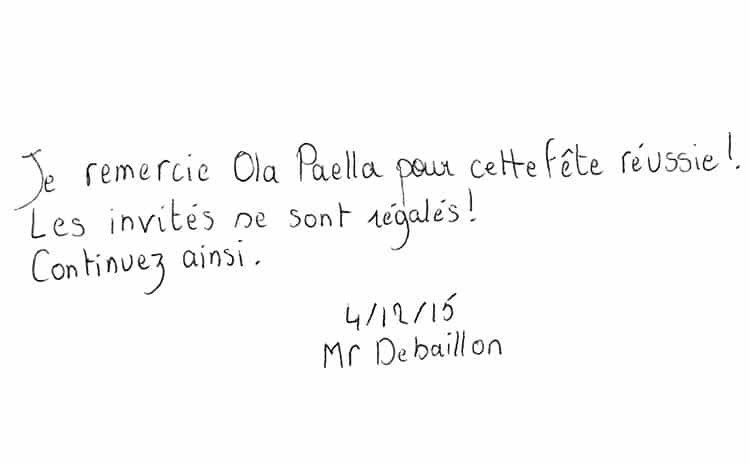 Je remercie Ola Paella pour cette fête réussie !.
Les invités se sont régalés !
Continuez ainsi.
4/12/15
Mr Debaillon